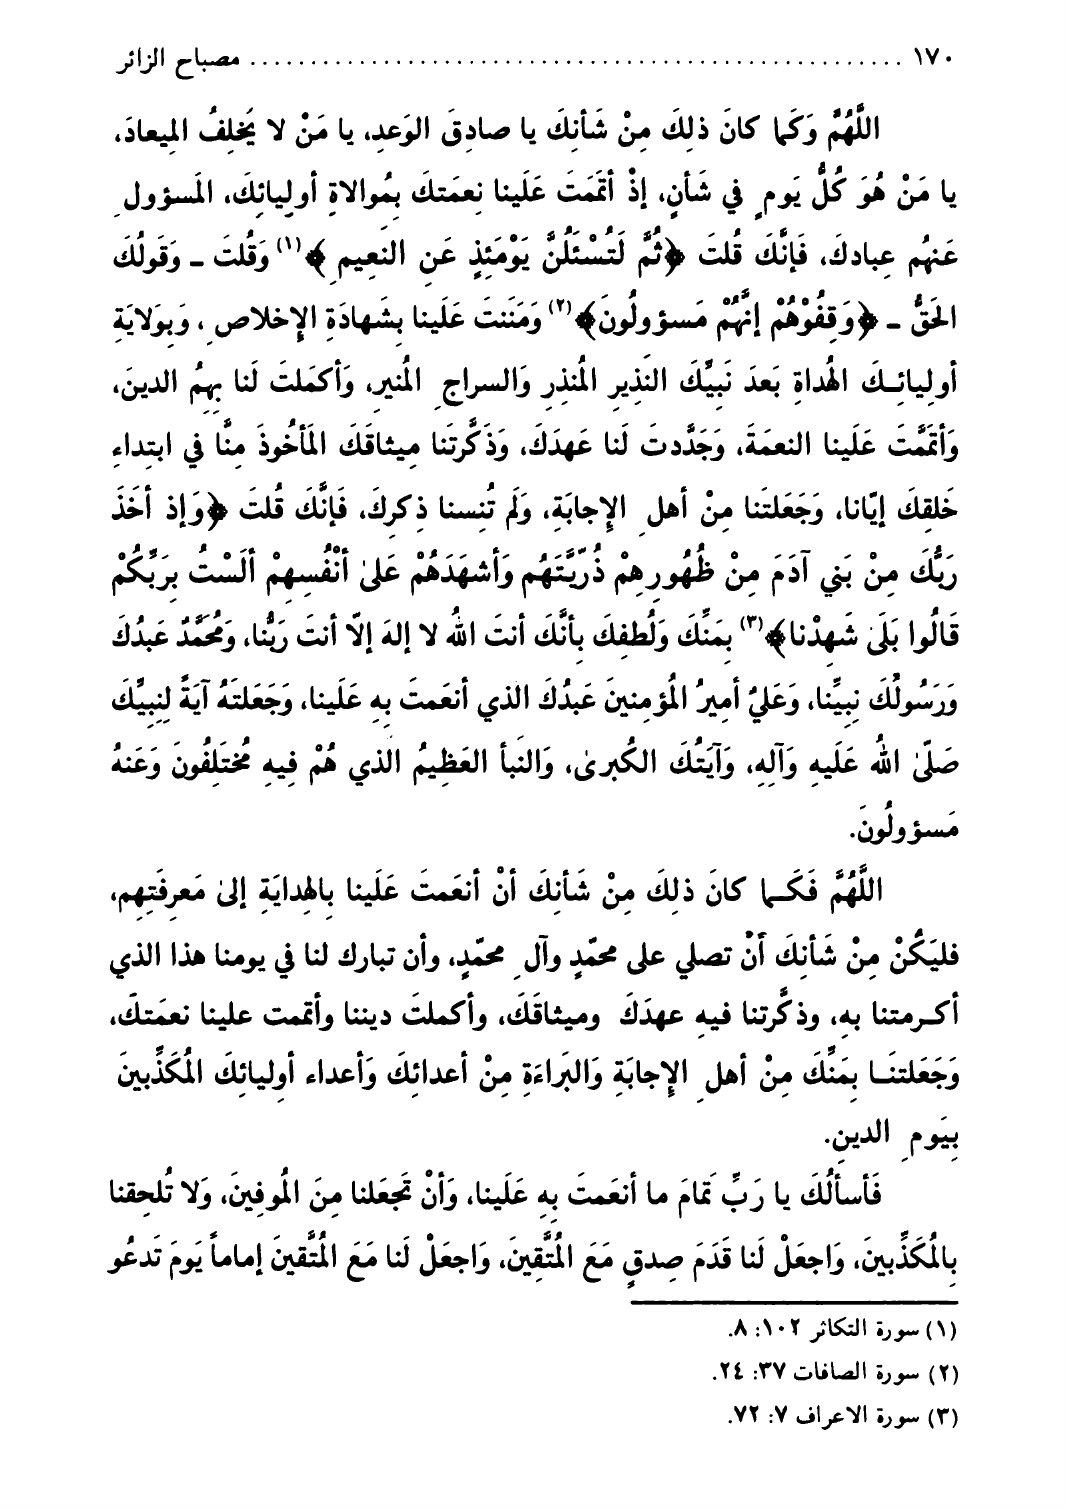 ١٧٠ ..................................................... مصباح الزائر
اللَّهُمَّ وَكَما كانَ ذلِكَ مِنْ شَأنِكَ يا صادِقَ الوَعدِ، يا مَنْ لا يُخلِفُ المِيعادَ،
يا مَنْ هُوَ كُلَّ يَومٍ في شَأنٍ، إذْ أتمَمَتَ عَلَينا نِعمَتكَ بِمُوالاةِ أولِيائِكَ، المَسؤولِ
عَنهُم عِبادكَ، فَإنَّكَ قُلتَ ﴿ثُمَّ لَتُسْئَلُنَّ يَوْمَئِذٍ عَنِ النعِيمِ﴾(١) وَقُلتَ ـ وَقَولُكَ
الحَقُّ ـ ﴿وَقِفُوْهُمْ إنَّهُمْ مَسؤولُونَ﴾(٢) وَمَنَنتَ عَلَينا بِشَهادَةِ الإِخلاصِ، وَبِوَلايَةِ
أولِيائِـكَ الهُداةِ بَعدَ نَبِيِّكَ النَذِيرِ المُنذِرِ وَالسراجِ المُنيرِ، وَأكمَلتَ لَنا بِهِمُ الدينَ،
وَأتمَّمَتَ عَلَينا النعمَةَ، وَجَدَّدتَ لَنا عَهدَكَ، وَذَكَّرتَنا مِيثاقَكَ المَأخُوذَ مِنَّا في ابتِداءِ
خَلقِكَ إيّانا، وَجَعَلتَنا مِنْ أهلِ الإِجابَةِ، وَلَم تُنسنا ذِكرِكَ، فَإنَّكَ قُلتَ ﴿وَإذ أخَذَ
رَبُّكَ مِنْ بَنِي آدَمَ مِنْ ظُهُورِهِمْ ذُرّيَّتَهُم وَأشهَدَهُمْ عَلىٰ أنْفُسِهِمْ ألَسْتُ بِرَبِّكُمْ
قَالُوا بَلَىٰ شَهِدْنا﴾(٣) بِمَنِّكَ وَلُطفِكَ بِأنَّكَ أنتَ اللهُ لا إلهَ إلاّ أنتَ رَبُّنا، وَمُحَمَّدٌ عَبدُكَ
وَرَسُولُكَ نبِيِّنا، وَعَليٌ أمِيرُ المُؤمِنينَ عَبدُكَ الذي أنعَمتَ بِهِ عَلَينا، وَجَعَلتَهُ آيَةً لِنبِيِّكَ
صَلّىٰ اللهُ عَلَيهِ وَآلِهِ، وَآيَتُكَ الكُبرىٰ، وَالنَبأ العَظِيمُ الذي هُمْ فِيهِ مُختَلِفُونَ وَعَنهُ
مَسؤولُونَ.
اللَّهُمَّ فَكَـما كانَ ذلِكَ مِنْ شَأنِكَ أنْ أنعَمتَ عَلَينا بِالهِدايَةِ إلىٰ مَعرِفَتِهِم،
فليَكُنْ مِنْ شَأنِكَ أنْ تصلي على محمّدٍ وآلِ محمّدٍ، وأن تبارك لنا في يومنا هذا الذي
أكـرمتنا بهِ، وذكَّرتنا فيهِ عهدَكَ وميثاقَكَ، وأكملتَ ديننا وأتممت علينا نعمَتكَ،
وَجَعَلتنَـا بِمَنِّكَ مِنْ أهلِ الإِجابَةِ وَالبَراءَةِ مِنْ أعدائِكَ وَأعداء أولِيائِكَ المُكَذِّبينَ
بِيَومِ الدينِ.
فَأسألُكَ يا رَبِّ تمَامَ ما أنعَمتَ بِهِ عَلَينا، وَأنْ تجَعَلنا مِنَ المُوفِينَ، وَلا تُلحِقنا
بِالمُكَذِّبينَ، وَاجعَلْ لَنا قَدَمَ صِدقٍ مَعَ المُتَّقِينَ، وَاجعَلْ لَنا مَعَ المُتَّقينَ إماماً يَومَ تَدعُو
(١) سورة التكاثر ١٠٢: ٨.
(٢) سورة الصافات ٣٧: ٢٤.
(٣) سورة الاعراف ٧: ٧٢.